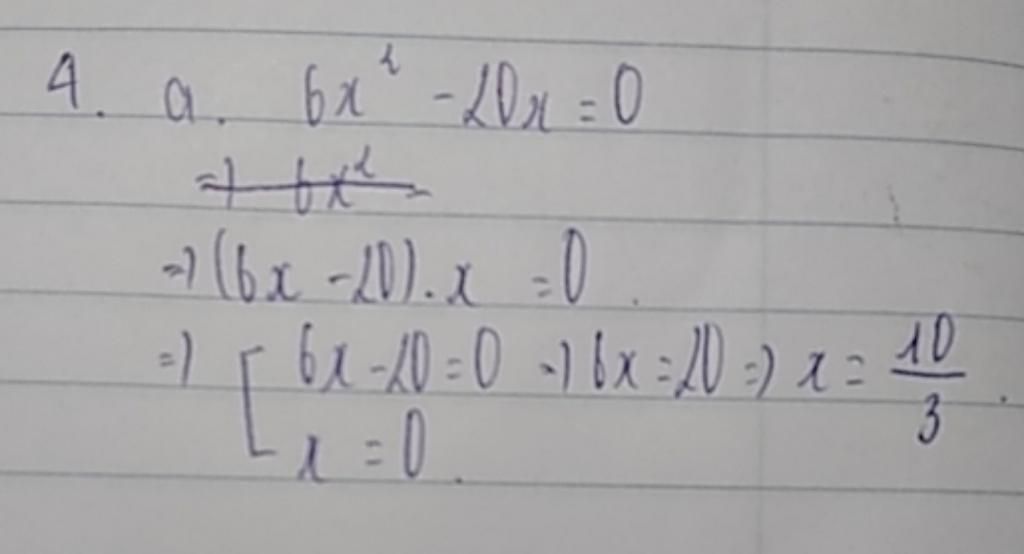 4. a. 6x² - 20x = 0
=> 6x² -
=> (6x - 20) . x = 0 .
=> [ 6x - 20 = 0 => 6x = 20 => x = 10/3 .
x = 0 .